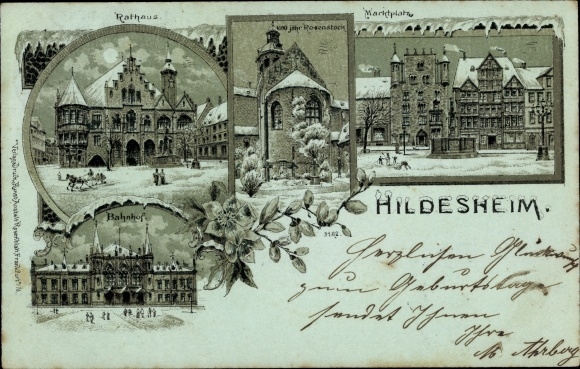 Rathaus.
1000 jähr. Rosenstock
Marktplatz.
Bahnhof.
HILDESHEIM.
3182
Herzlichen Glückwunsch
zum Geburtstage
sendet Ihnen
Ihre
M. Ahrberg